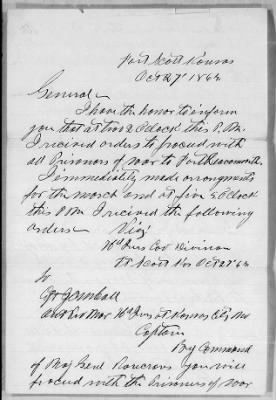 Fort Scott Kansas
Oct 27" 1864
General
I have the honor to inform
you that at two 2 O'Clock this P.M.
I recived orders to procced with
all Prisoners of War to Forth Leavenworth.
I immediatly made arrangments
for the march and at five 5 O'Clock
this P.M I recived the following
orders Viz
Hd Qrs Cav Division
Ft Scott Kas Oct 27 64
To
Capt
Act Pro Mar Hd Qrs at Kansas City Mo
Captain
By Command
of Maj Genl you will
procced with the Prisoners of War